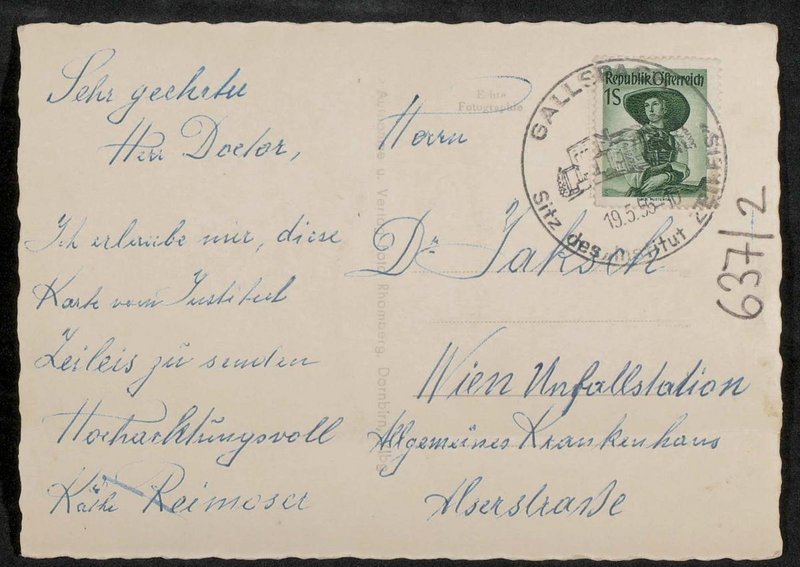 Sehr geehrter
Herr Doctor,
Ich erlaube mir, diese
Karte vom Institut
Zeileis zu senden
Hochachtungsvoll
Käthe Reimoser
Echte
Fotographie
Rhomberg, Dornbirn
Republik Österreich
1S
GALLSPACH
Sitz des "Institut Zeileis"
19.5.56-10
Herrn
Dr Jaksch
Wien Unfallstation
Allgemeines Krankenhaus
Alserstraße
637/2